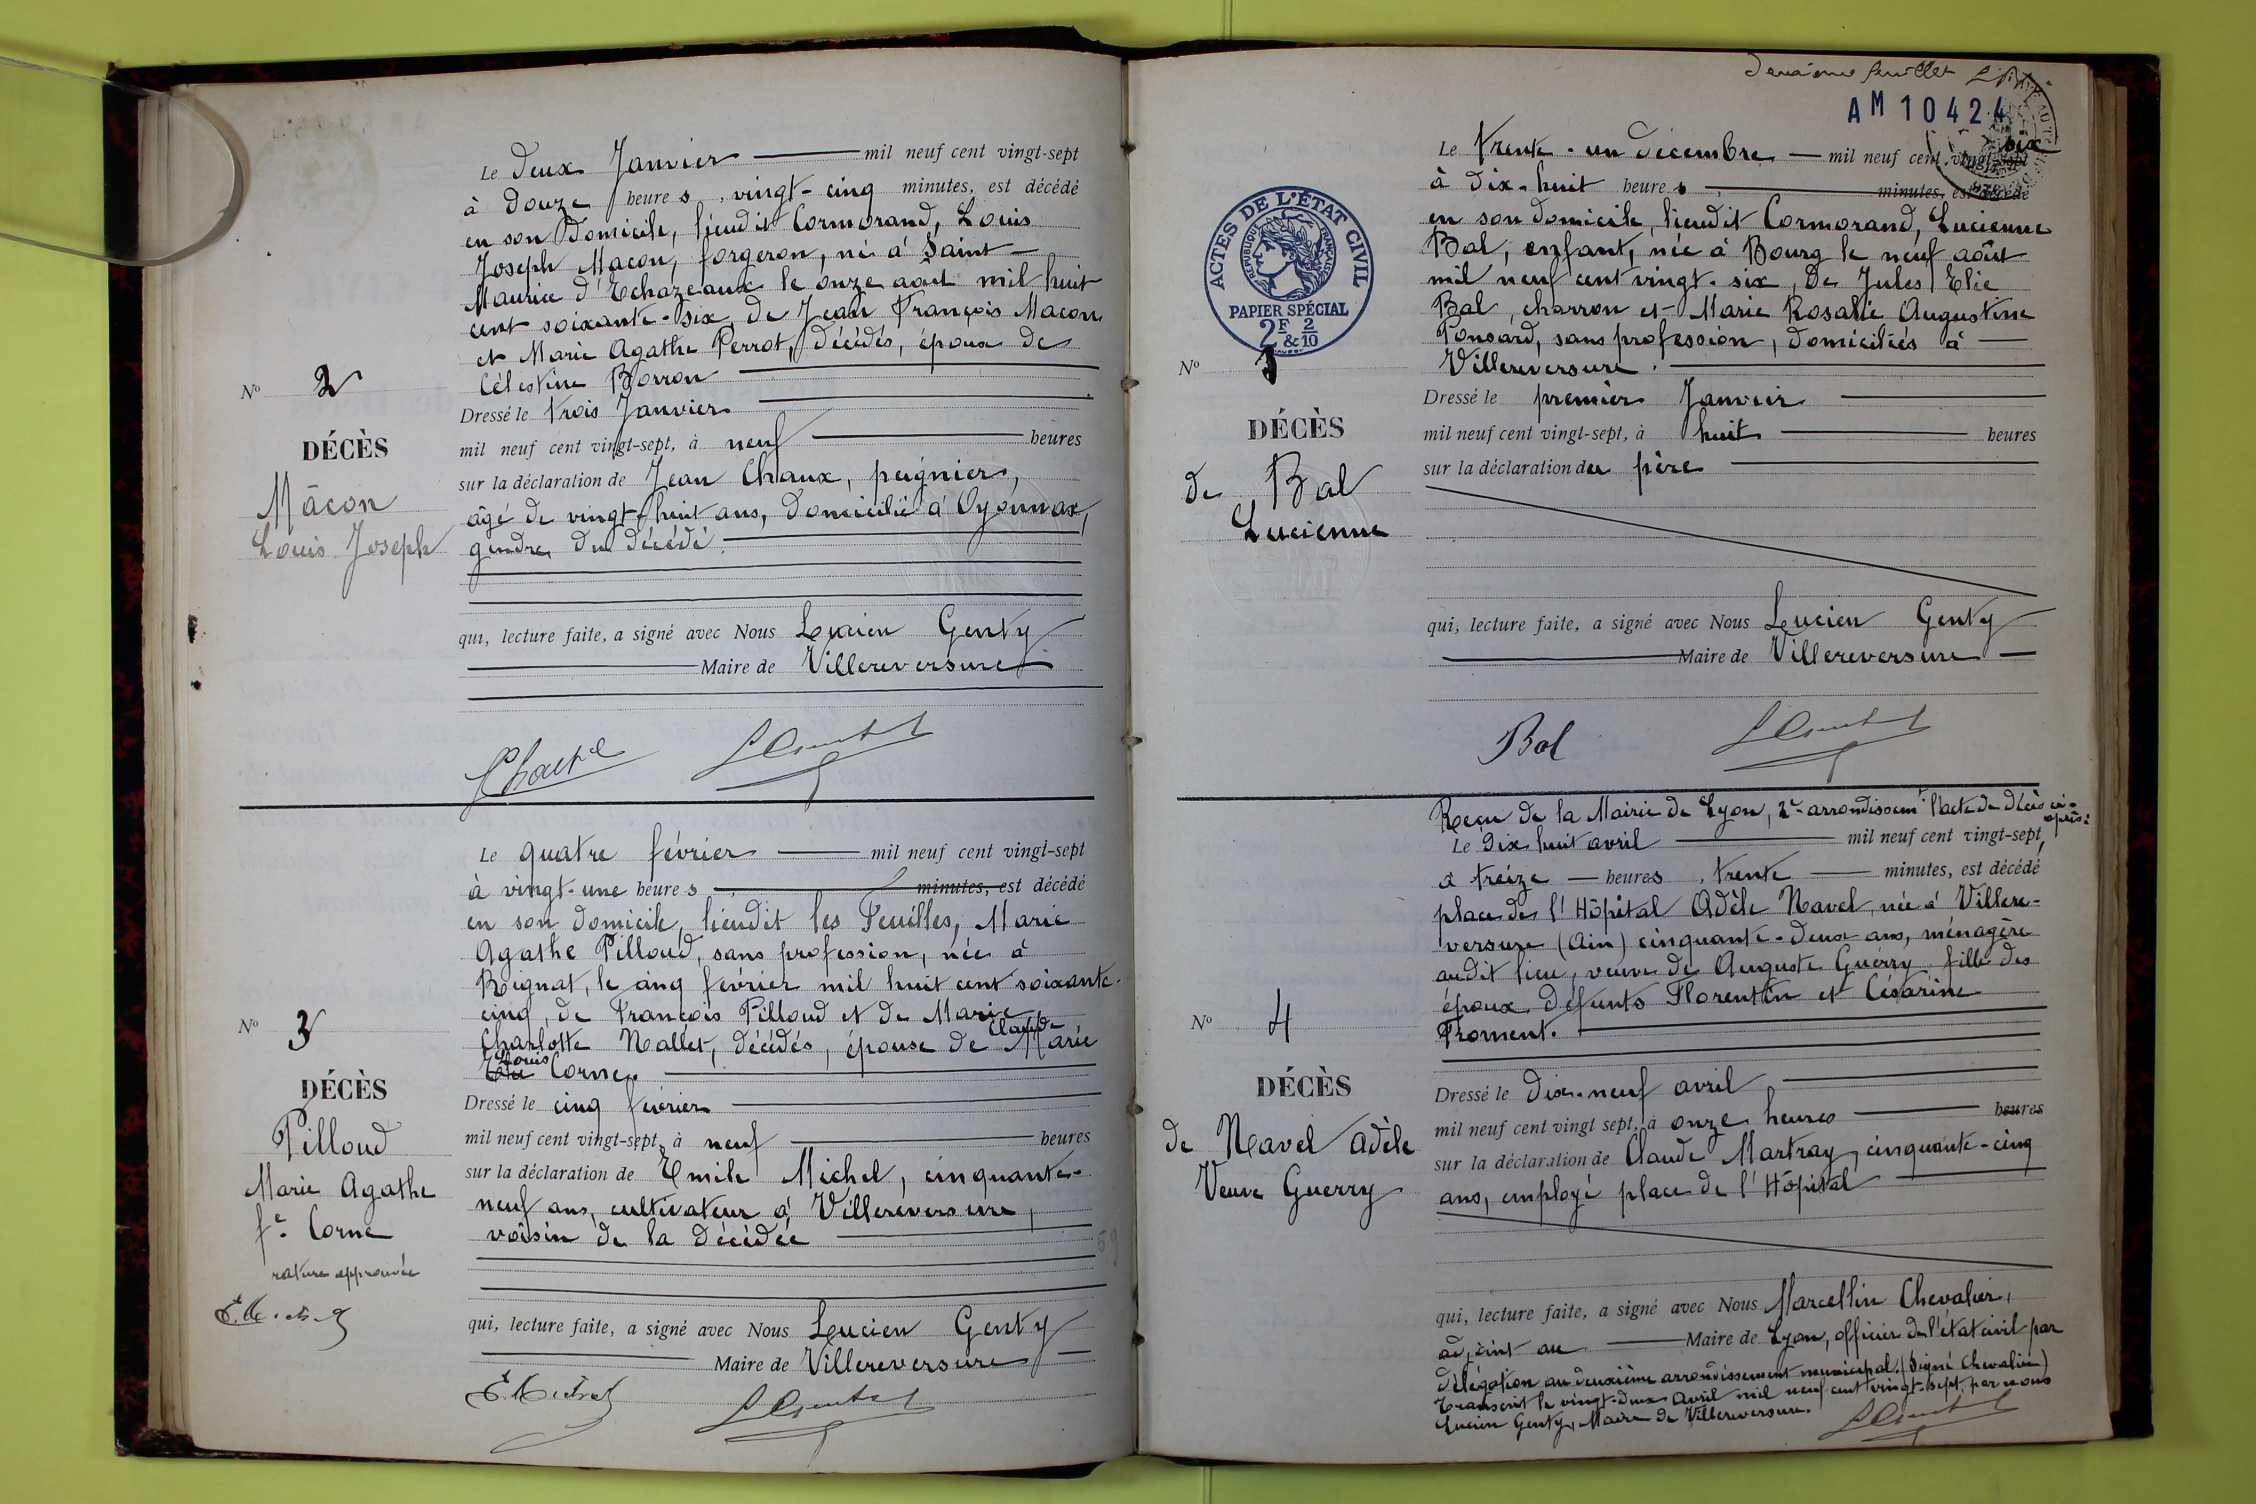 Le deux Janvier mil neuf cent vingt-sept
à douze heures, vingt-cinq minutes, est décédé
en son domicile, lieudit Cormorand, Louis
Joseph Macon, forgeron, né à Saint
Maurice d'Echazeaux le onze août mil huit
cent soixante-six, de Jean François Macon
et Marie Agathe Perrot, décédés, époux de
Célestine Borron
Dressé le trois Janvier
mil neuf cent vingt-sept, à neuf heures
sur la déclaration de Jean Chaux, peignier,
âgé de vingt-huit ans, domicilié à Oyonnax,
gendre du décédé.
qui, lecture faite, a signé avec Nous Lucien Genty
Maire de Villereversure
No 2
DÉCÈS
Mâcon
Louis Joseph
Le quatre février mil neuf cent vingt-sept
à vingt-une heures, minutes, est décédé
en son domicile, lieudit les Feuilles, Marie
Agathe Pilloud, sans profession, née à
Rignat, le cinq février mil huit cent soixante-
cinq, de François Pilloud et de Marie
Charlotte Nallet, décédés, épouse de Claude Marie
Louis Corne.
Dressé le cinq février
mil neuf cent vingt-sept, à neuf heures
sur la déclaration de Emile Michel, cinquante-
neuf ans, cultivateur à Villereversure,
voisin de la décédée
qui, lecture faite, a signé avec Nous Lucien Genty
Maire de Villereversure
E. Michel
No 3
DÉCÈS
Pilloud
Marie Agathe
fe Corne
rature approuvée
E. Michel
59
Deuxième feuillet
AM 10424
ACTES DE L'ÉTAT CIVIL
RÉPUBLIQUE FRANÇAISE
PAPIER SPÉCIAL
2F & 2/10
Le trente-un décembre mil neuf cent vingt-sept six
à dix-huit heures minutes, est décédé
en son domicile, lieudit Cormorand, Lucienne
Bal, enfant, née à Bourg le neuf août
mil neuf cent vingt-six, de Jules Elie
Bal, charron et Marie Rosalie Augustine
Ponsard, sans profession, domiciliés à
Villereversure.
Dressé le premier Janvier
mil neuf cent vingt-sept, à huit heures
sur la déclaration du père
qui, lecture faite, a signé avec Nous Lucien Genty
Maire de Villereversure
Bal
No 1
DÉCÈS
de Bal
Lucienne
Reçu de la Mairie de Lyon, 2e arrondissemt l'acte de décès ci-après:
Le dix huit avril mil neuf cent vingt-sept,
à treize heures, trente minutes, est décédé
place de l'Hôpital Adèle Navel, née à Villere-
versure (Ain) cinquante-deux ans, ménagère
audit lieu, veuve de Auguste Guerry fille des
époux défunts Florentin et Césarine
Froment.
Dressé le dix-neuf avril
mil neuf cent vingt sept, à onze heures heures
sur la déclaration de Claude Martray, cinquante-cinq
ans, employé place de l'Hôpital
qui, lecture faite, a signé avec Nous Marcellin Chevalier,
adjoint au Maire de Lyon, officier de l'état civil par
délégation au deuxième arrondissement municipal. (Signé Chevalier)
Transcrit le vingt-deux avril mil neuf cent vingt-sept, par nous
Lucien Genty, Maire de Villereversure.
No 4
DÉCÈS
de Navel Adèle
Veuve Guerry